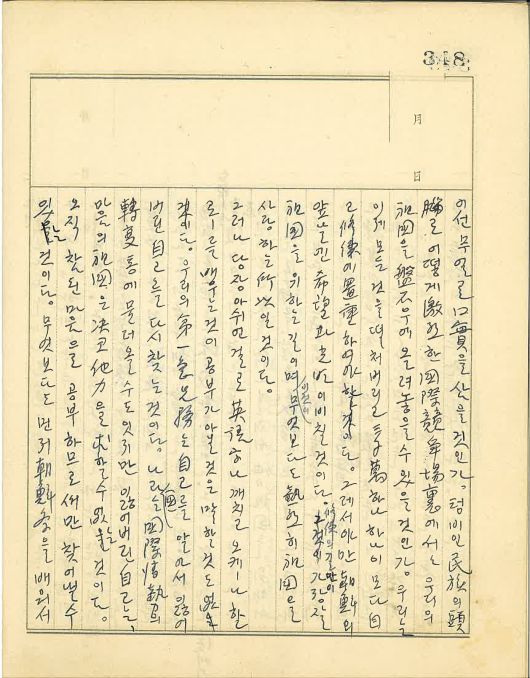 348
月
日
이선 무엇으로 口實을 삼을 것인가. 텅 비인 民族의 頭
腦로 어떻게 激烈한 國際競爭場裏에서 우리의
祖國을 盤石우에 올려놓을 수 있을 것인가. 우리는
이제 모든 것을 떨처버리고 하나 하나이 모다 自
己修練에 置重하여야 할 것이다. 그래서야만 朝鮮의
앞날엔 希望과 光이 비칠 것이다. 가장
祖國을 위하는 길이며 무엇보다도 熱烈히 祖國을
사랑하는 所以일 것이다.
그러나 당장 아쉬운 걸로 英語 하나 깨치고 오케- 나 한
로-를 배우는 것이 공부가 아닐 것은 말할 것도 없을
것이다. 우리의 第一急先務는 自己를 알아서 잃어
버린 自己를 다시 찾는 것이다. 나라는 國際情勢의
轉変통에 물러올 수도 있지만 잃어버린 自己는,
마음의 祖國은 決코 他力을 求할 수 없을 것이다.
오직 참된 마음으로 공부하므로써만 찾어낼 수
있는 것이다. 무엇보다도 먼저 朝鮮 을 배워서